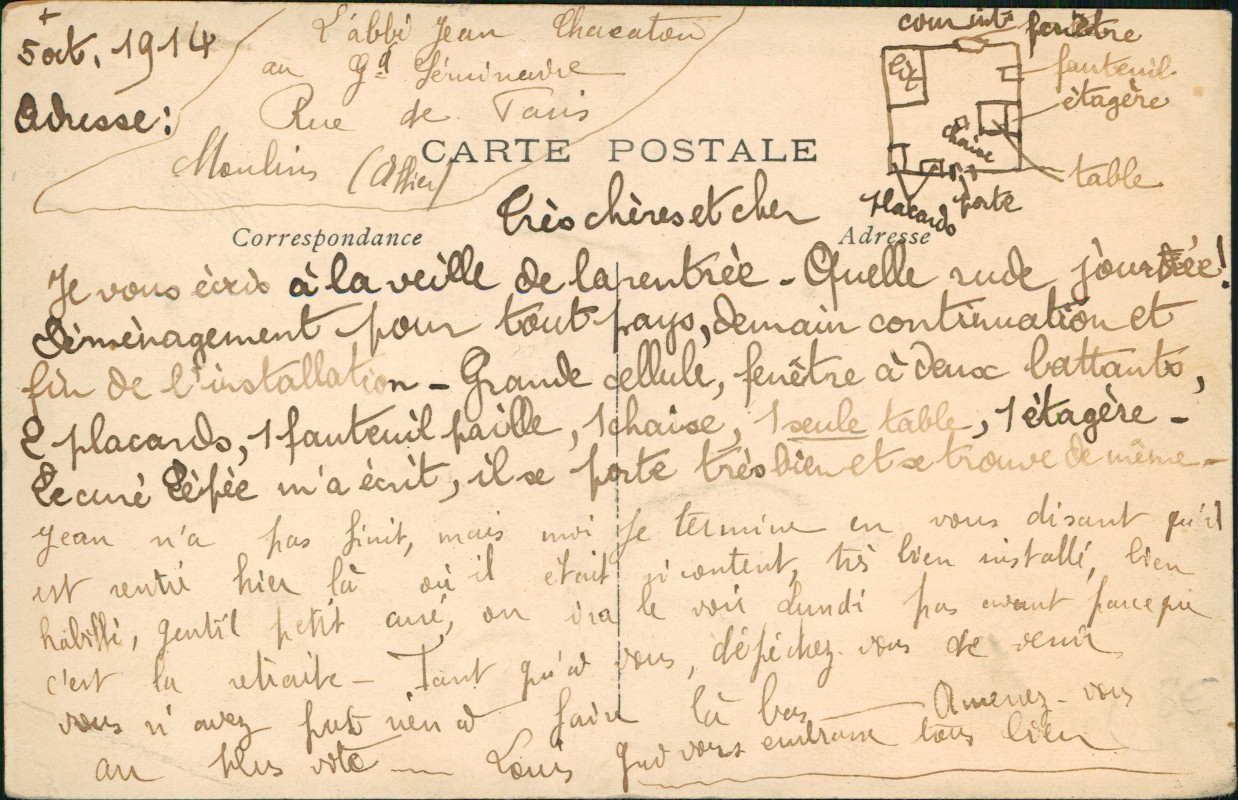 +
5 oct. 1914
Adresse:
L'abbé Jean Chacaton
au Gd Séminaire
Rue de Paris
Moulins (Allier)
cour intre fenêtre
lit
fauteuil
étagère
chaise
table
placards porte
CARTE POSTALE
Très chères et cher
Correspondance
Adresse
Je vous écris à la veille de la rentrée - Quelle rude journée!
Déménagement pour tout pays, demain continuation et
fin de l'installation - Grande cellule, fenêtre à deux battants,
2 placards, 1 fauteuil paille, 1 chaise, 1 seule table, 1 étagère -
Le curé Lépée m'a écrit, il se porte très bien et se trouve de même -
Jean n'a pas finit, mais moi je termine en vous disant qu'il
est rentré hier là où il était si content, très bien installé, bien
habillé, gentil petit curé, on ira le voir Lundi pas avant parceque
c'est la retraite - Tant qu'à vous, dépéchez-vous de venir
vous n'avez put rien à faire là bas — Amenez-vous
au plus vite — Louis qui vous embrasse tous bien